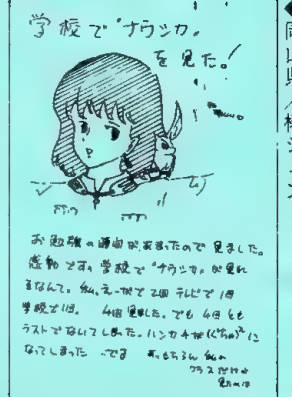 学校で"ナウシカ"
を見た!
お勉強の時間があまったので見ました。
感動です。学校で"ナウシカ"が見れ
るなんて。私、えーがで2回テレビで1回
学校で1回。4回見ました。でも4回とも
ラストでないてしまった。ハンカチが
なってしまった です もちろん私の
クラスだけよ
見たのは
岡山県